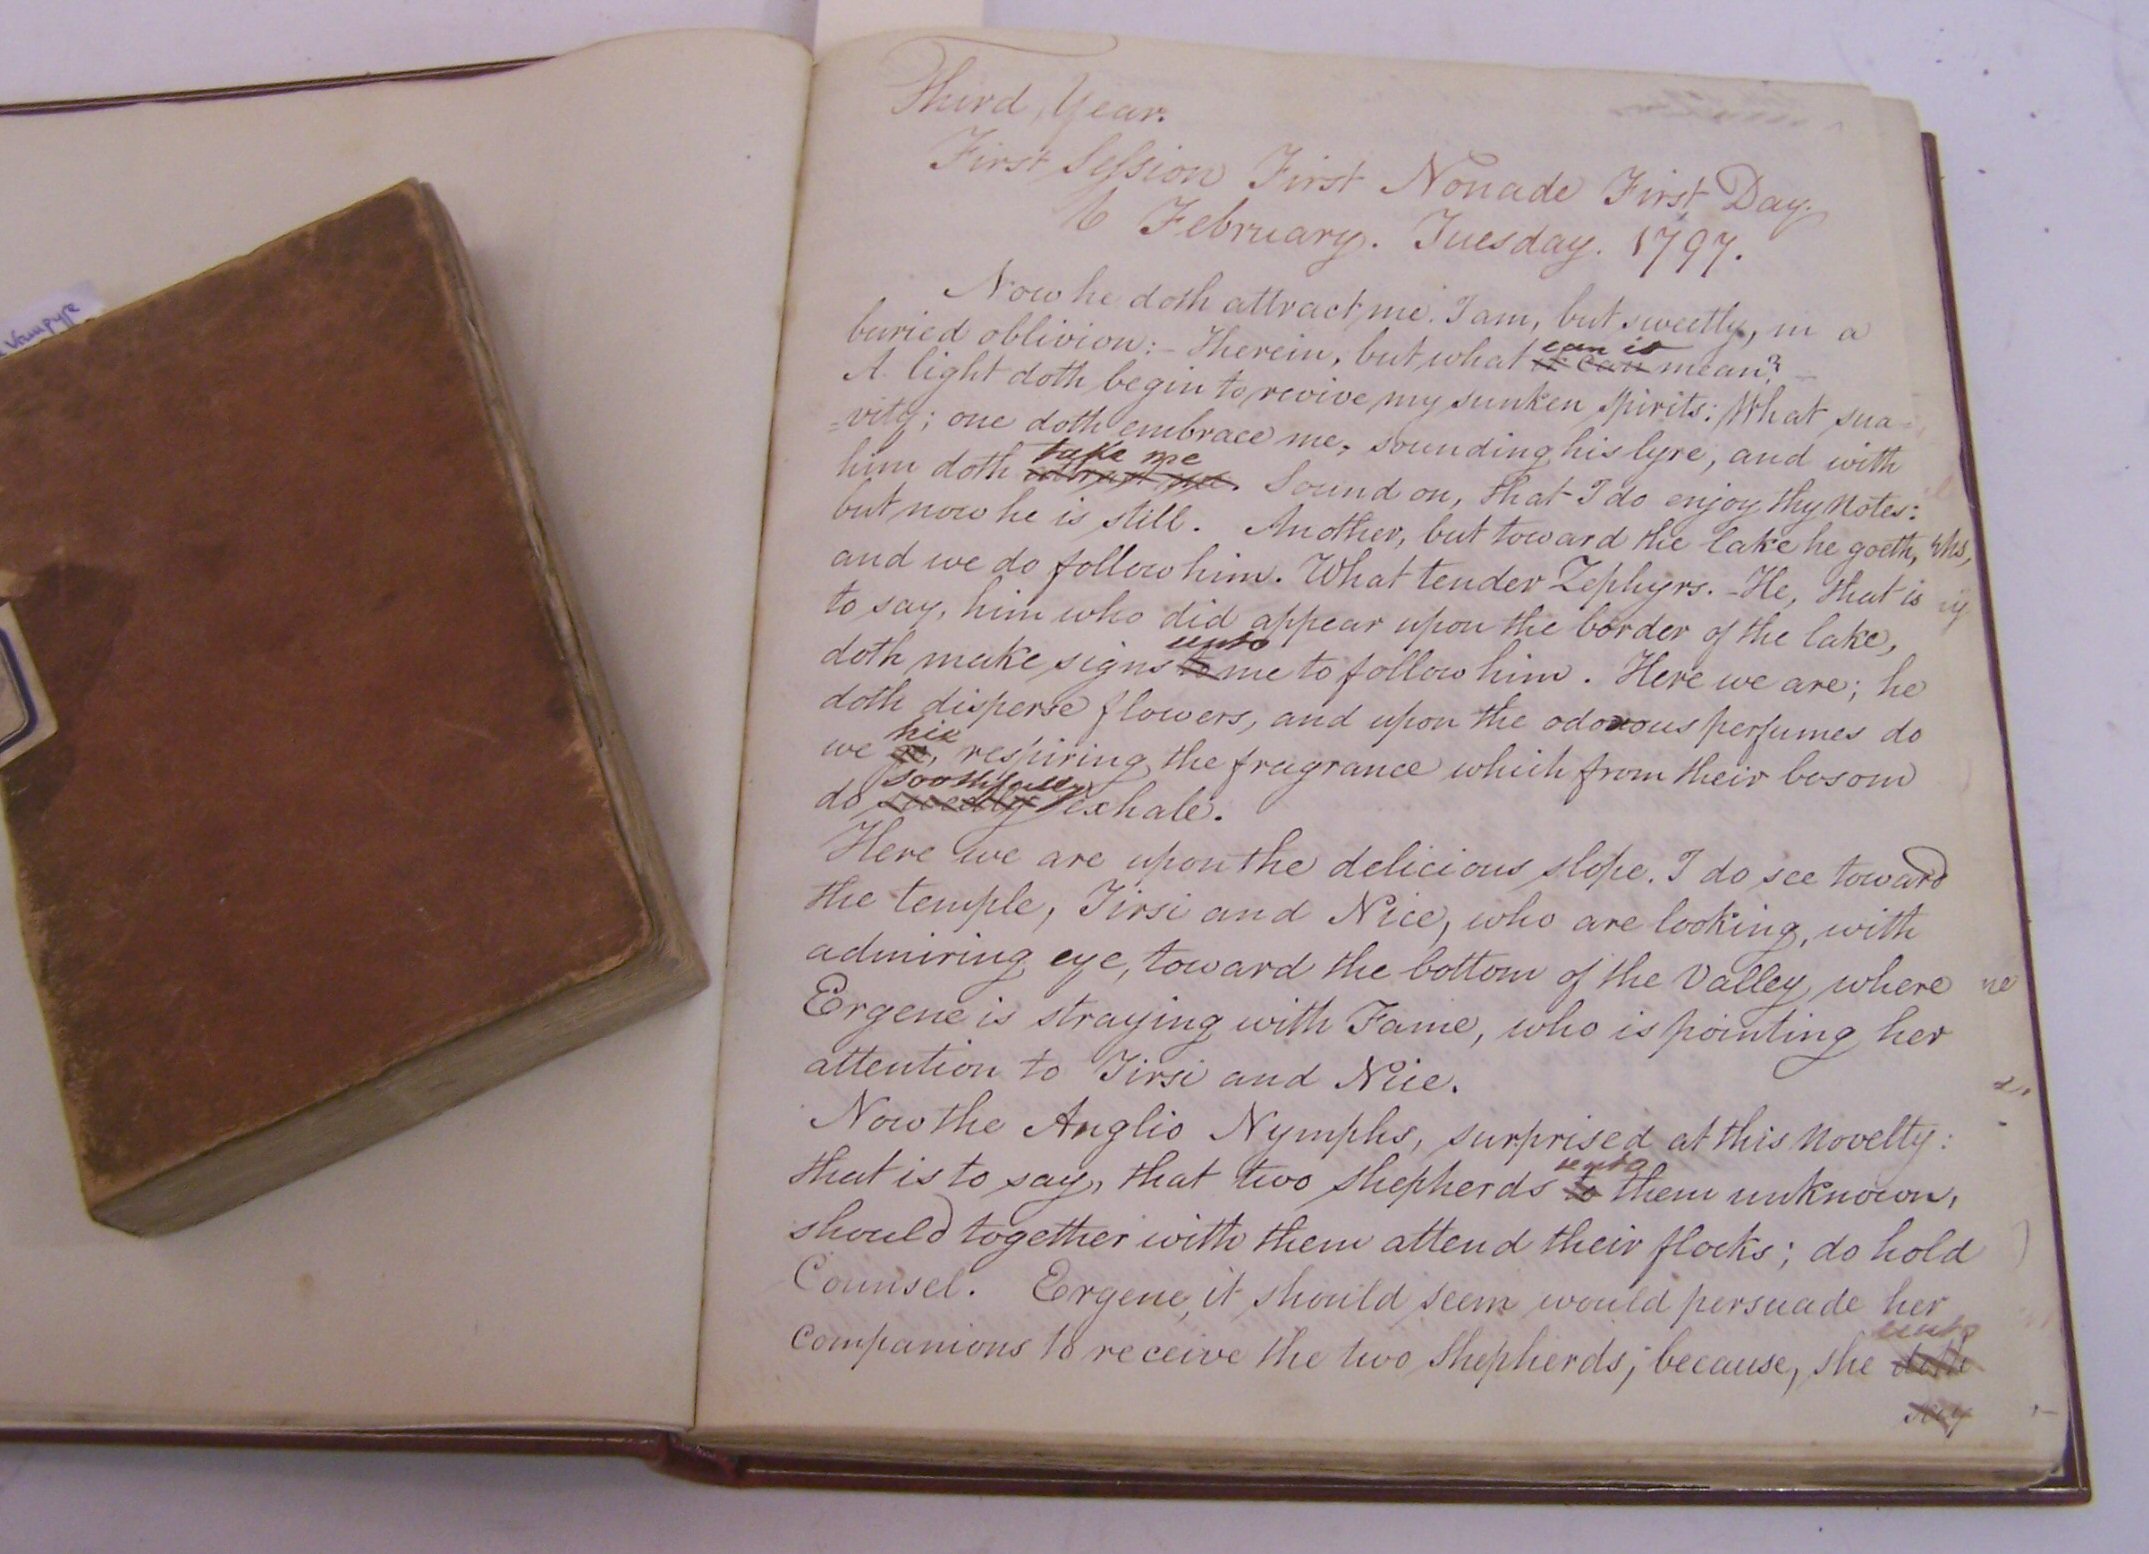 Vampyre
Third Year.
First Session First Nonade First Day.
6 February. Tuesday. 1797.
Now he doth attract me. I am, but sweetly, in a
buried oblivion:- Therein, but what can it mean?
A light doth begin to revive my sunken spirits: What sua-
=vity; one doth embrace me, sounding his lyre, and with
him doth take me. Sound on, that I do enjoy thy notes:
but now he is still. Another, but toward the lake he goeth,
and we do follow him. What tender Zephyrs. - He, that is
to say, him who did appear upon the border of the lake,
doth make signs unto to me to follow him. Here we are; he
doth disperse flowers, and upon the odorous perfumes do
we, respiring the fragrance which from their bosom
do soothfully sweetly exhale.
Here we are upon the delicious slope. I do see toward
the temple, Tirsi and Nice, who are looking, with
admiring eye, toward the bottom of the Valley, where
Ergene is straying with Fame, who is pointing her
attention to Tirsi and Nice.
Now the Anglio Nymphs, surprised at this novelty:
that is to say, that two shepherds unto to them unknown,
should together with them attend their flocks; do hold
Counsel. Ergene, it should seem would persuade her
companions to receive the two shepherds; because, she unto doth
say